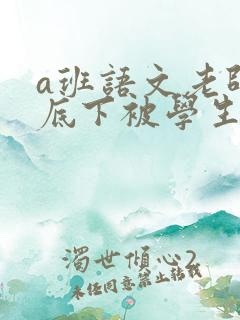 a班語文老師
底下被學生
濁世傾心2
未经同意禁止转载